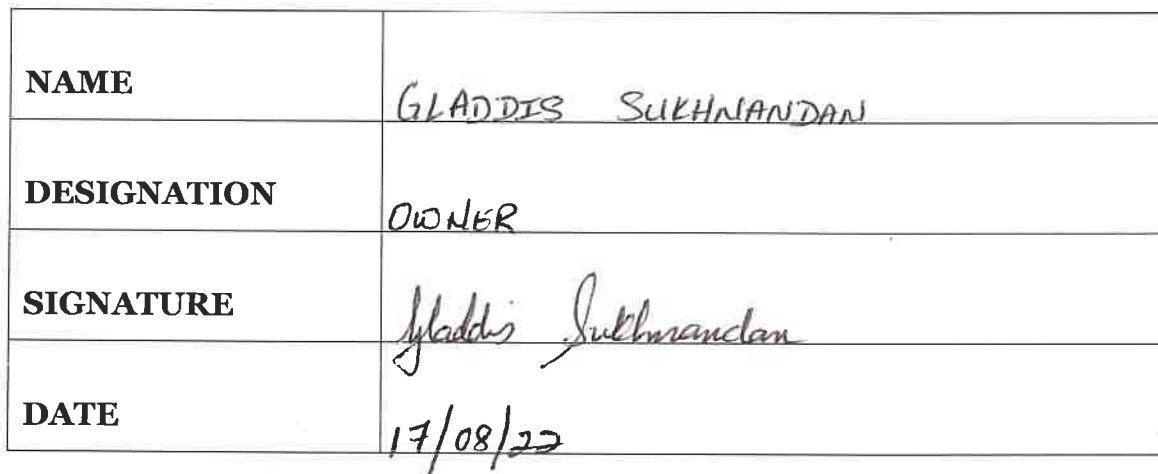 NAME GLADDIS SUKHNANDAN
DESIGNATION OWNER
SIGNATURE Gladdis Sukhnandan
DATE 17/08/22